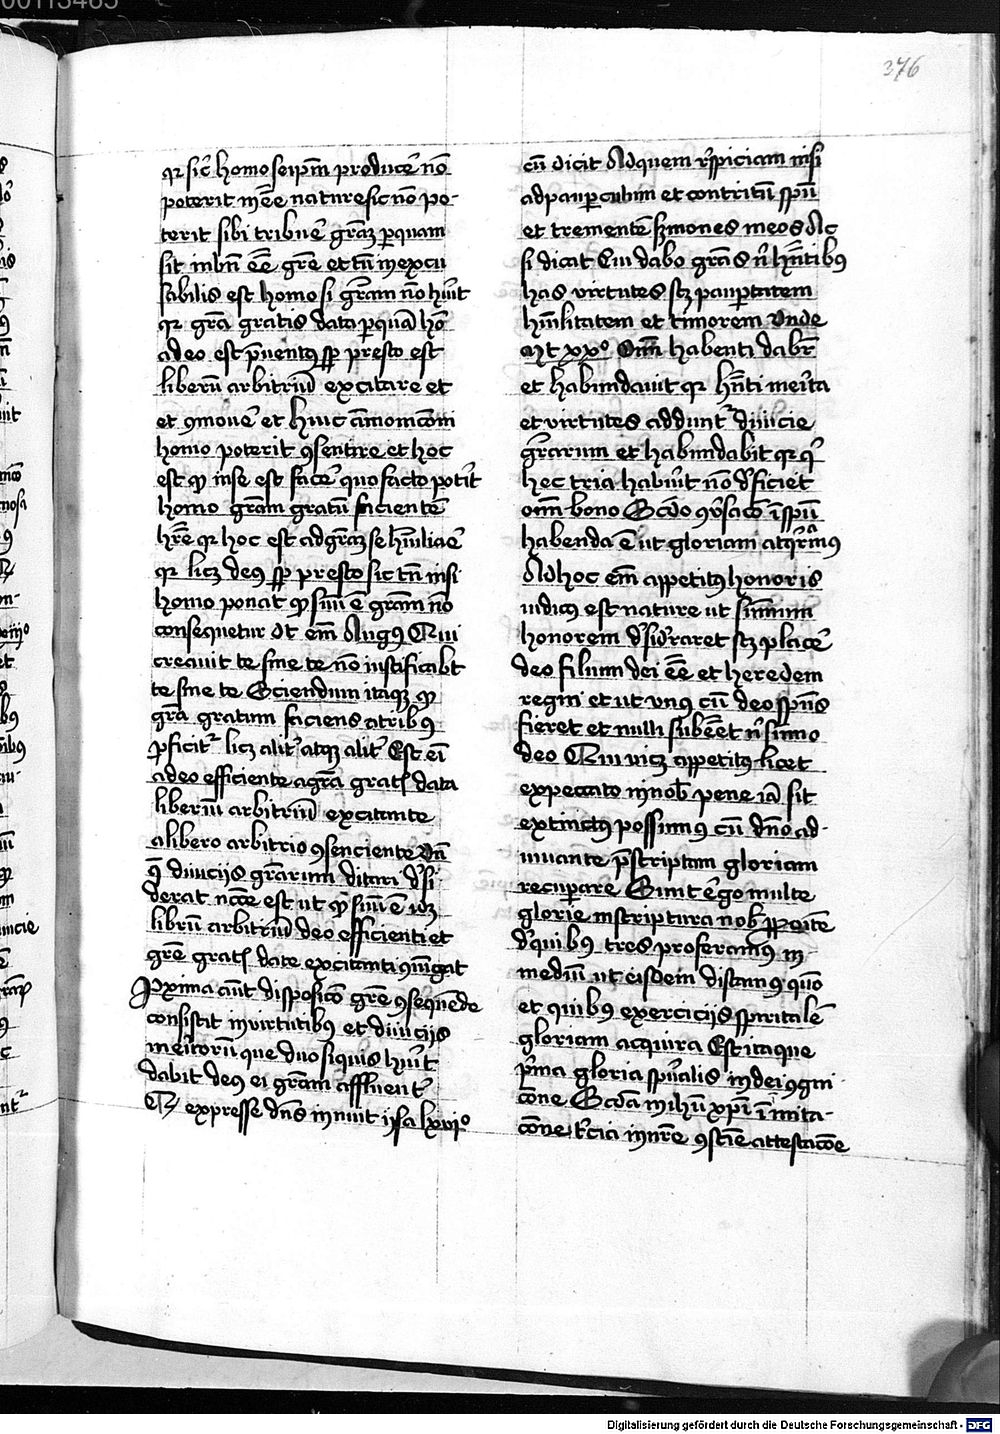 376
qr sic̄ homo seip̄m produce᷑ no̅
poterit in e̅e̅ nature sic no̅ po-
terit sibi tribue᷑ gr̅a̅z ꝑquam
sit in bn̅ e̅e̅ gr̅e et tn̅ inexcu
sabilis est homo si gr̅am no̅ hu̅it
qr gr̅a gratis data ꝑqua̅ ho̅
a deo est p̅uentꝰ sꝑ presto est
liberu̅ arbitriu̅ excitare et
et ꝯmoue᷑ et huic
homo poterit ꝯsentire et hoc
est qꝫ in se est face᷑ quo facto pot̅it
homo gr̅am gratu̅ faciente̅
h̅re qr hoc est ad gr̅az se hu̅iliae᷑
qr licꝫ deꝰ sꝑ presto sic tn̅ nisi
homo ponat qꝫ suu̅ e̅ gr̅am no̅
consequetur Ut em̅ Augꝰ Qui
creauit te sine te no̅ iustificabt
te sine te Sciendum itaqꝫ qꝫ
gr̅a gratum faciens a tribꝰ
ꝑficit᷑ licꝫ alit᷑ atqꝫ alit᷑ Est ei̅
a deo efficiente a gr̅a grat̅ data
liberu̅ arbitriu̅ excitante
a libero arbitrio ꝯsenciente Un̅
q̅ diuicijs gr̅arum ditari d̅si-
derat nc̅ce est ut qꝫ suu̅ e̅ vꝫ
libru̅ arbitriu̅ deo efficienti et
gr̅e grat̅ date excitanti ꝯiu̅gat
Pxima aut̅ disposico̅ gr̅e ꝯsequende
consistit in virtutibꝰ et diuicijs
meritoru̅ que duo si quis hu̅it
dabit deꝰ ei gr̅am affluent᷑
Qꝫ expresse dn̅s innuit ysa lxvjᵒ
cu̅ dicit Ad quem r̅spiciam nisi
ad pauꝑculum et contritu̅ sp̅u̅
et tremente̅ s̅mones meos Ac
si dicat Cui dabo gr̅as n̅ h̅ntibus
has virtutes scꝫ pauꝑtatem
hu̅ilitatem et timorem Unde
Mt xxᵒ Om̅i habenti dabr̅
et habundauit qr h̅nti merita
et virtutes addunt᷑ diuicie
gr̅arum et habundabit qr q̅
hec tria habu̅it no̅ d̅ficiet
om̅i bono Scd̅o ꝯu̅saco̅ i̅ sp̅u̅
habenda e̅ ut gloriam acqr̅amꝰ
Ad hoc em̅ appetitꝰ honoris
inditꝰ est nature ut su̅mum
honorem d̅sid̅raret scꝫ place᷑
deo filium dei e̅e̅ et heredem
regni et ut vnꝰ cu̅ deo sp̅us
fieret et nulli subee̅t n̅ su̅mo
deo Qui vicꝫ appetitꝰ licet
ex peccato in nob̅ pene ia̅ sit
extinctꝰ possumꝰ cu̅ dn̅o ad-
iuuante p̅scriptam gloriam
recuꝑare Sunt e̅go multe
glorie in scriptura nob̅ ꝓposite
d̅ quibꝰ tres proferamꝰ in
mediu̅ ut eisdem discamꝰ quo̅
et quibꝰ exercicijs sp̅iritale̅
gloriam acquira Est itaque
p̅ma gloria sp̅u̅alis in dei ꝯgni-
cone Scd̅a in ihu̅ xp̅i i̅mita-
cone t̅cia in n̅re ꝯsc̅ie attestaco̅e
Digitalisierung gefördert durch die Deutsche Forschungsgemeinschaft - DFG